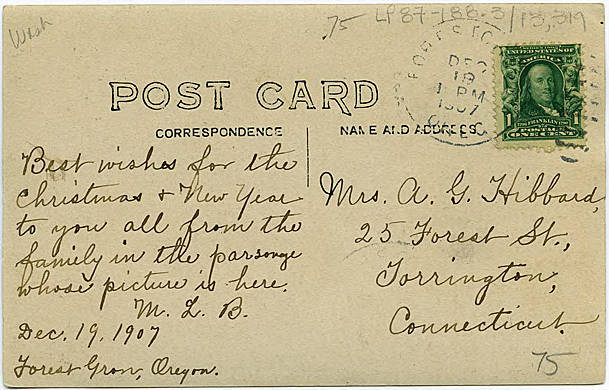 Wash
.75
LP87-188.3/13,319
FOREST GRO
DEC
19
1 PM
1907
OREG
UNITED STATES OF
AMERICA
1 FRANKLIN 1
POSTAGE
ONE CENT
POST CARD
CORRESPONDENCE
NAME AND ADDRESS
Best wishes for the
Christmas & New Year
to you all from the
family in the parsonge
whose picture is here.
M. L. B.
Dec. 19, 1907
Forest Grov, Oregon.
Mrs. A. G. Hibbard,
25 Forest St.,
Torrington,
Connecticut.
75